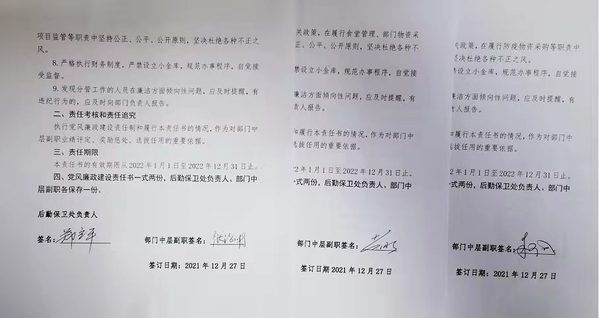 项目监管等职责中坚持公正、公平、公开原则，坚决杜绝各种不正之
风。
8.严格执行财务制度，严禁设立小金库，规范办事程序，自觉接
受监督。
9.发现分管工作的人员在廉洁方面倾向性问题，应及时提醒，有
违纪行为的，应及时向部门负责人报告。
二、责任考核和责任追究
执行党风廉政建设责任制和履行本责任书的情况，作为对部门中
层副职业绩评定、奖励惩处、选拔任用的重要依据。
三、责任期限
本责任书的有效期限从2022年1月1日至2022年12月31日止。
四、党风廉政建设责任书一式两份，后勤保卫处负责人、部门中
层副职各保存一份。
后勤保卫处负责人
签名：
部门中层副职签名：
签订日期：2021年12月27日
关政策，在履行食堂管理、部门物资采
公正、公平、公开原则，坚决杜绝各种
严禁设立小金库，规范办事程序，自觉
廉洁方面倾向性问题，应及时提醒，
责人报告。
和履行本责任书的情况，作为对部门
选拔任用的重要依据。
1月1日至2022年12月31日止。
式两份，后勤保卫处负责人、部门
部门中层副职签名：
签订日期：2021年12月27日
关政策，在履行防疫物资采购等职责中
坚决杜绝各种不正之风。
严禁设立小金库，规范办事程序，自觉接
廉洁方面倾向性问题，应及时提醒，有
责人报告。
和履行本责任书的情况，作为对部门中
选拔任用的重要依据。
1月1日至2022年12月31日止。
式两份，后勤保卫处负责人、部门中
部门中层副职签名：
签订日期：2021年12月27日